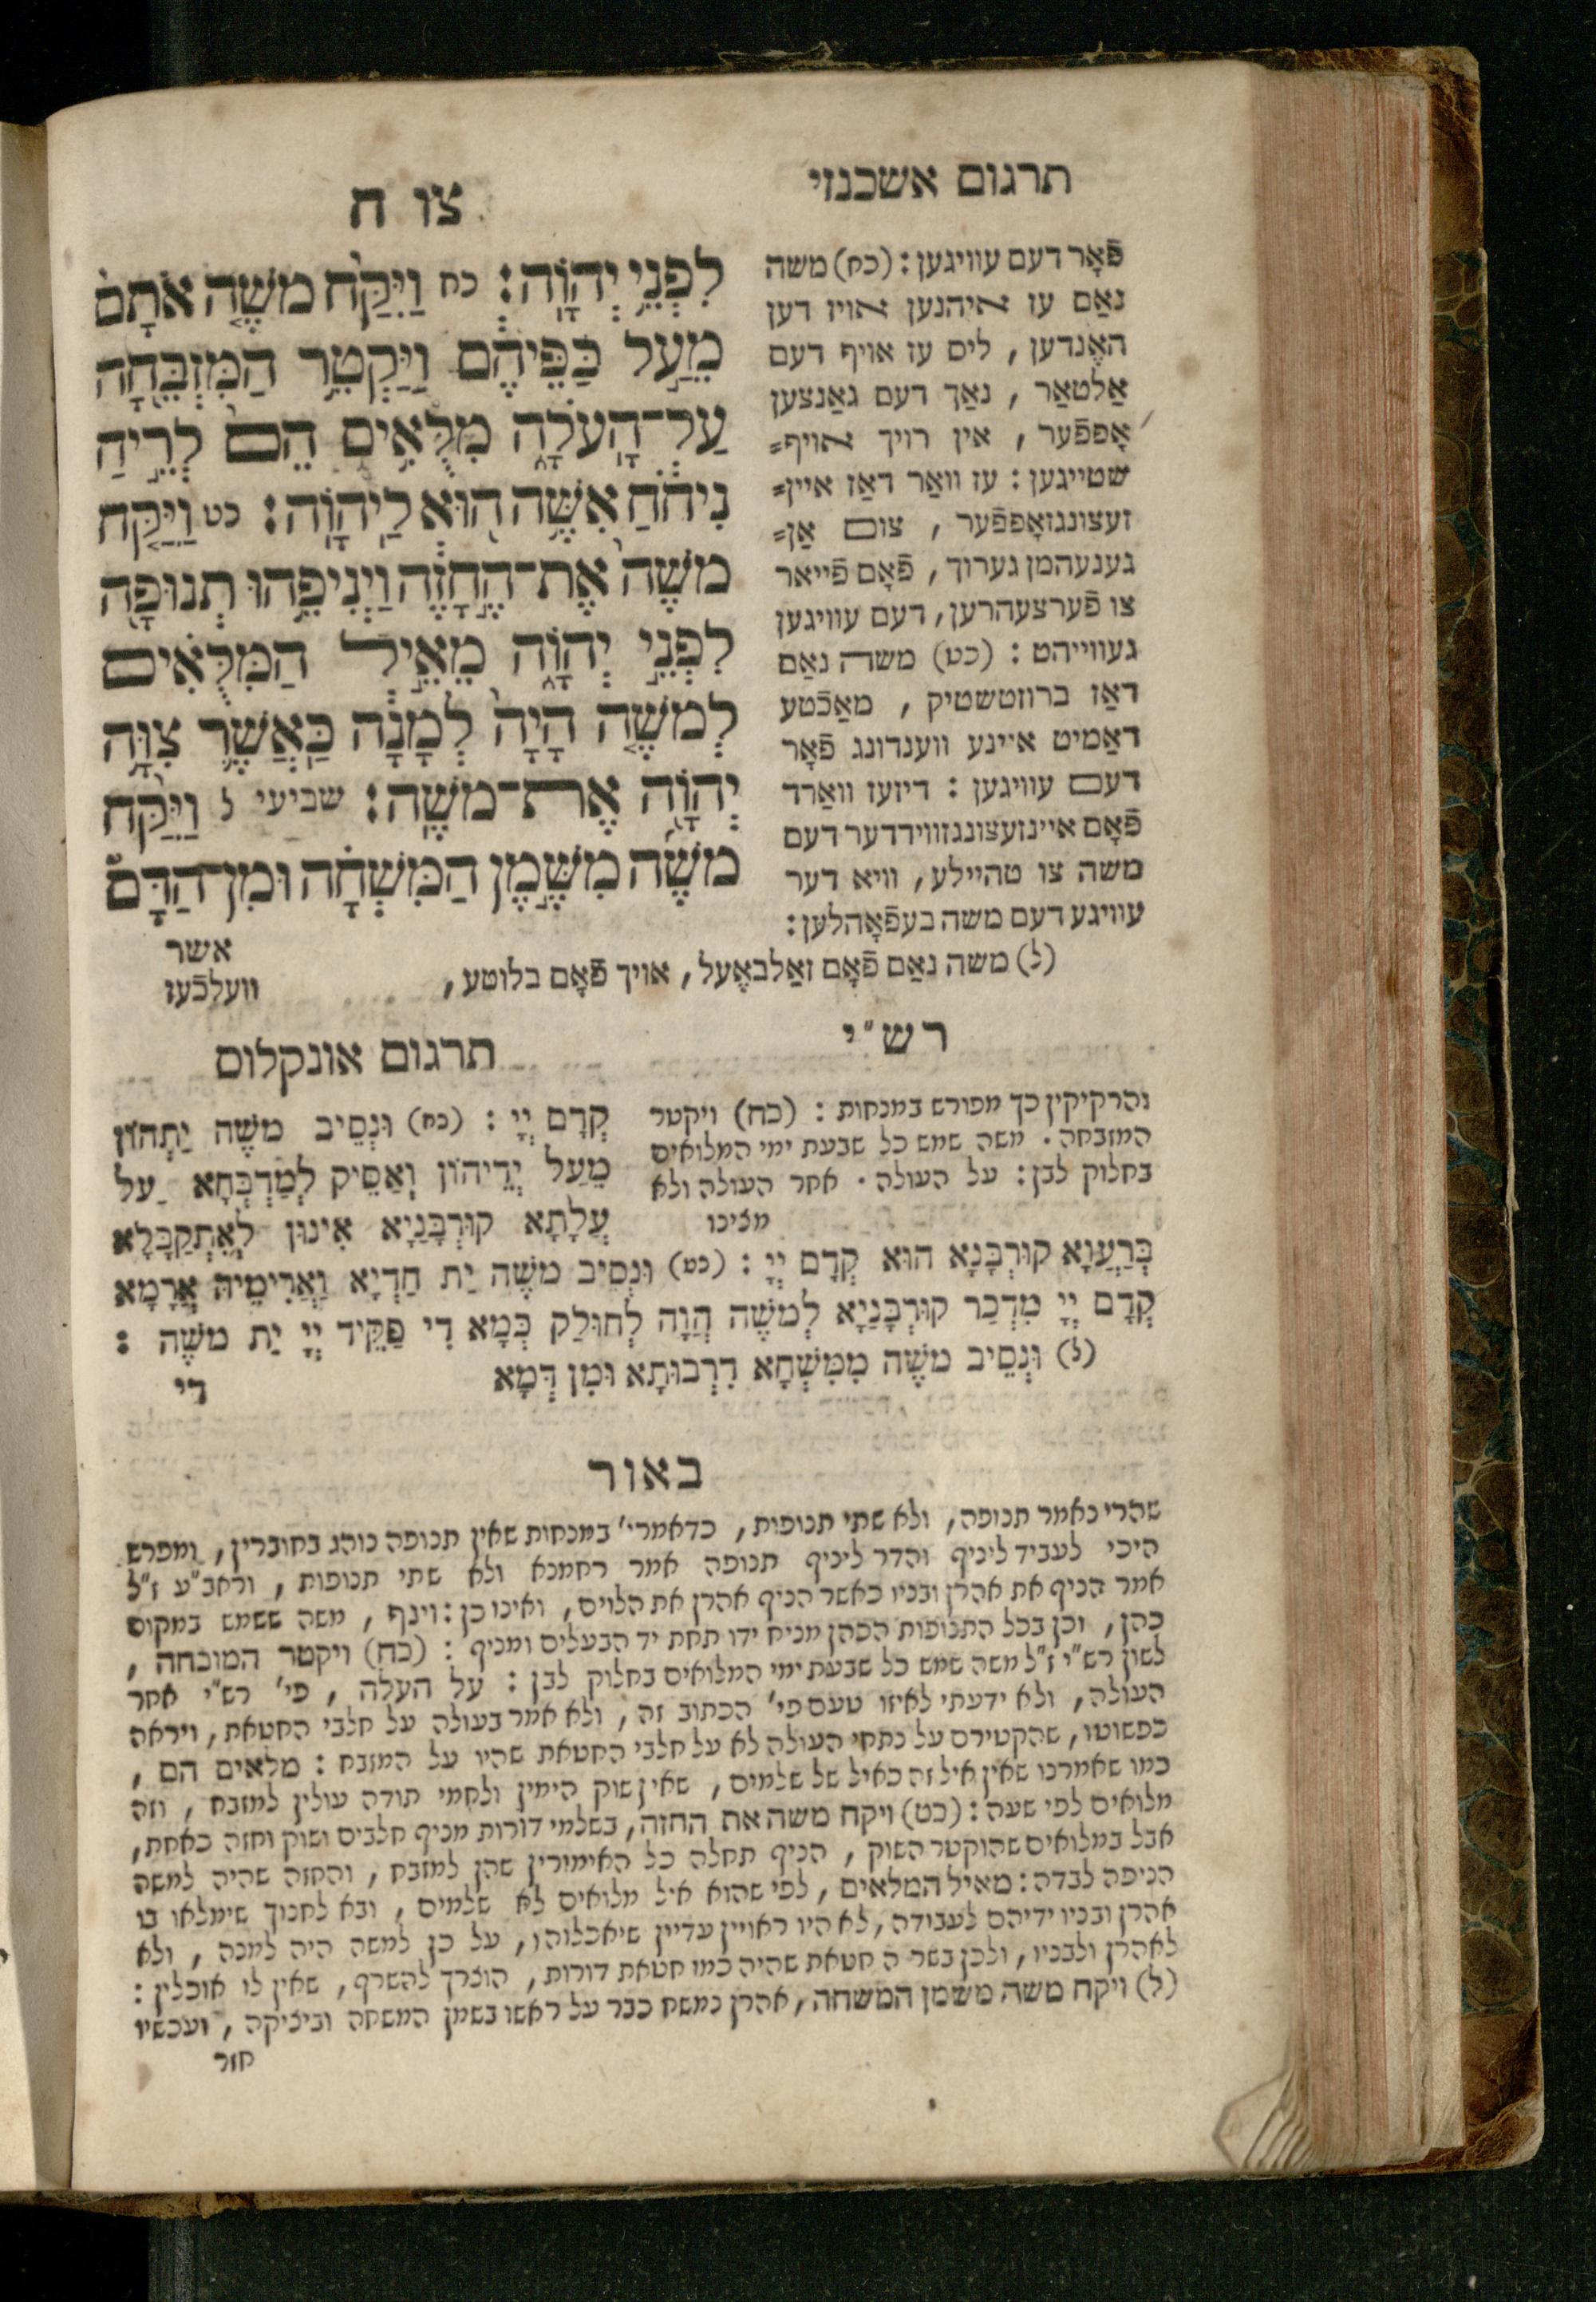 תרגום אשכנזי
צו ח
פֿאָר דעם עוויגען : (כח) משה
נאַם עז איהנען אויז דען
האֶנדען , ליס עז אויף דעם
אַלטאַר , נאַך דעם גאַנצען
אָפפֿער , אין רויך אויף⸗
שטייגען : עז וואַר דאַז איין⸗
זעצונגזאָפפֿער , צום אַן⸗
גענעהמן גערוך , פֿאָם פֿייאר
צו פֿערצעהרען , דעם עוויגען
געווייהט : (כט) משה נאַם
דאַז ברוזטשטיק , מאַכֿטע
דאַמיט איינע ווענדונג פֿאָר
דעם עוויגען : דיזעז וואַרד
פֿאָם איינזעצונגזווידדער דעם
משה צו טהיילע , וויא דער
עוויגע דעם משה בעפֿאָהלען :
(ל) משה נאַם פֿאָם זאַלבאֶעל , אויך פֿאָם בלוטע ,
וועלכֿעז
לִפְנֵ֥י יְהוָֽה׃ כח וַיִּקַּ֨ח מֹשֶׁ֤ה אֹתָם֙
מֵעַ֣ל כַּפֵּיהֶ֔ם וַיַּקְטֵ֥ר הַמִּזְבֵּ֖חָה
עַל־הָעֹלָ֑ה מִלֻּאִ֥ים הֵם֙ לְרֵ֣יחַ
נִיחֹ֔חַ אִשֶּׁ֥ה ה֖וּא לַיהוָֽה׃ כט וַיִּקַּ֤ח
מֹשֶׁה֙ אֶת־הֶ֣חָזֶ֔ה וַיְנִיפֵ֥הוּ תְנוּפָ֖ה
לִפְנֵ֣י יְהוָ֑ה מֵאֵ֣יל הַמִּלֻּאִ֗ים
לְמֹשֶׁ֤ה הָיָה֙ לְמָנָ֔ה כַּאֲשֶׁ֛ר צִוָּ֥ה
יְהוָ֖ה אֶת־מֹשֶֽׁה׃ שביעי ל וַיִּקַּ֨ח
מֹשֶׁ֜ה מִשֶּׁ֣מֶן הַמִּשְׁחָ֗ה וּמִן־הַדָּם֮
אשר
רש״י
נהרקיקין כך מפורש במנחות : (כח) ויקטר
המזבחה . משה שמש כל שבעת ימי המלואים
בחלוק לבן : על העולה . אחר העולה ולא
מצינו
תרגום אונקלוס
קְדָם יְיָ : (כח) וּנְסֵיב מֹשֶׁה יַתְהוֹן
מֵעַל יְדֵיהוֹן וְאַסֵּיק לְמַדְבְּחָא עַל
עֲלָתָא קוּרְבָּנַיָא אִינוּן לְאִתְקַבָּלָא
בְּרַעֲוָא קוּרְבָּנָא הוּא קֳדָם יְיָ : (כט) וּנְסֵיב מֹשֶׁה יַת חַדְיָא וַאֲרִימֵיהּ אֲרָמָא
קֳדָם יְיָ מִדְּכַר קוּרְבָּנַיָא לְמֹשֶׁה הֲוָה לְחוּלַק כְּמָא דִי פַקֵּיד יְיָ יַת מֹשֶׁה :
(ל) וּנְסֵיב מֹשֶׁה מִמִּשְׁחָא דִרְבוּתָא וּמִן דְּמָא
די
באור
שהרי נאמר תנופה , ולא שתי תנופות , כדאמרי׳ במנחות שאין תנופה נוהג בחוברין , ומפרש
היכי לעביד ליניף והדר ליניף תנופה אמר רחמנא ולא שתי תנופות , וראב״ע ז״ל
אמר הניף את אהרן ובניו כאשר הניף אהרן את הלוים , ואינו כן : וינף , משה ששמש במקום
כהן , וכן בכל התנופות הכהן מניח ידו תחת יד הבעלים ומניף : (כח) ויקטר המזבחה ,
לשון רש״י ז״ל משה שמש כל שבעת ימי המלואים בחלוק לבן : על העלה , פי׳ רש״י אחר
העולה , ולא ידעתי לאיזו טעם פי׳ הכתוב זה , ולא אמר בעולה על חלבי החטאת , ויראה
כפשוטו , שהקטירם על נתחי העולה לא על חלבי החטאת שהיו על המזבח : מלאים הם ,
כמו שאמרנו שאין איל זה כאיל של שלמים , שאין שוק הימין ולחמי תודה עולין למזבח , וזה
מלואים לפי שעה : (כט) ויקח משה את החזה , בשלמי דורות מניף חלבים ושוק וחזה כאחת ,
אבל במלואים שהוקטר השוק , הניף תחלה כל האימורין שהן למזבח , והחזה שהיה למשה
הניפה לבדה : מאיל המלאים , לפי שהוא איל מלואים לא שלמים , ובא לחנוך שימלאו בו
אהרן ובניו ידיהם לעבודה , לא היו ראויין עדיין שיאכלוהו , על כן למשה היה למנה , ולא
לאהרן ולבניו , ולכן בשר ה חטאת שהיה כמו חטאת דורות , הוצרך להשרף , שאין לו אוכלין :
(ל) ויקח משה משמן המשחה , אהרן נמשח כבר על ראשו בשמן המשחה וביציקה , ועכשיו
חזר